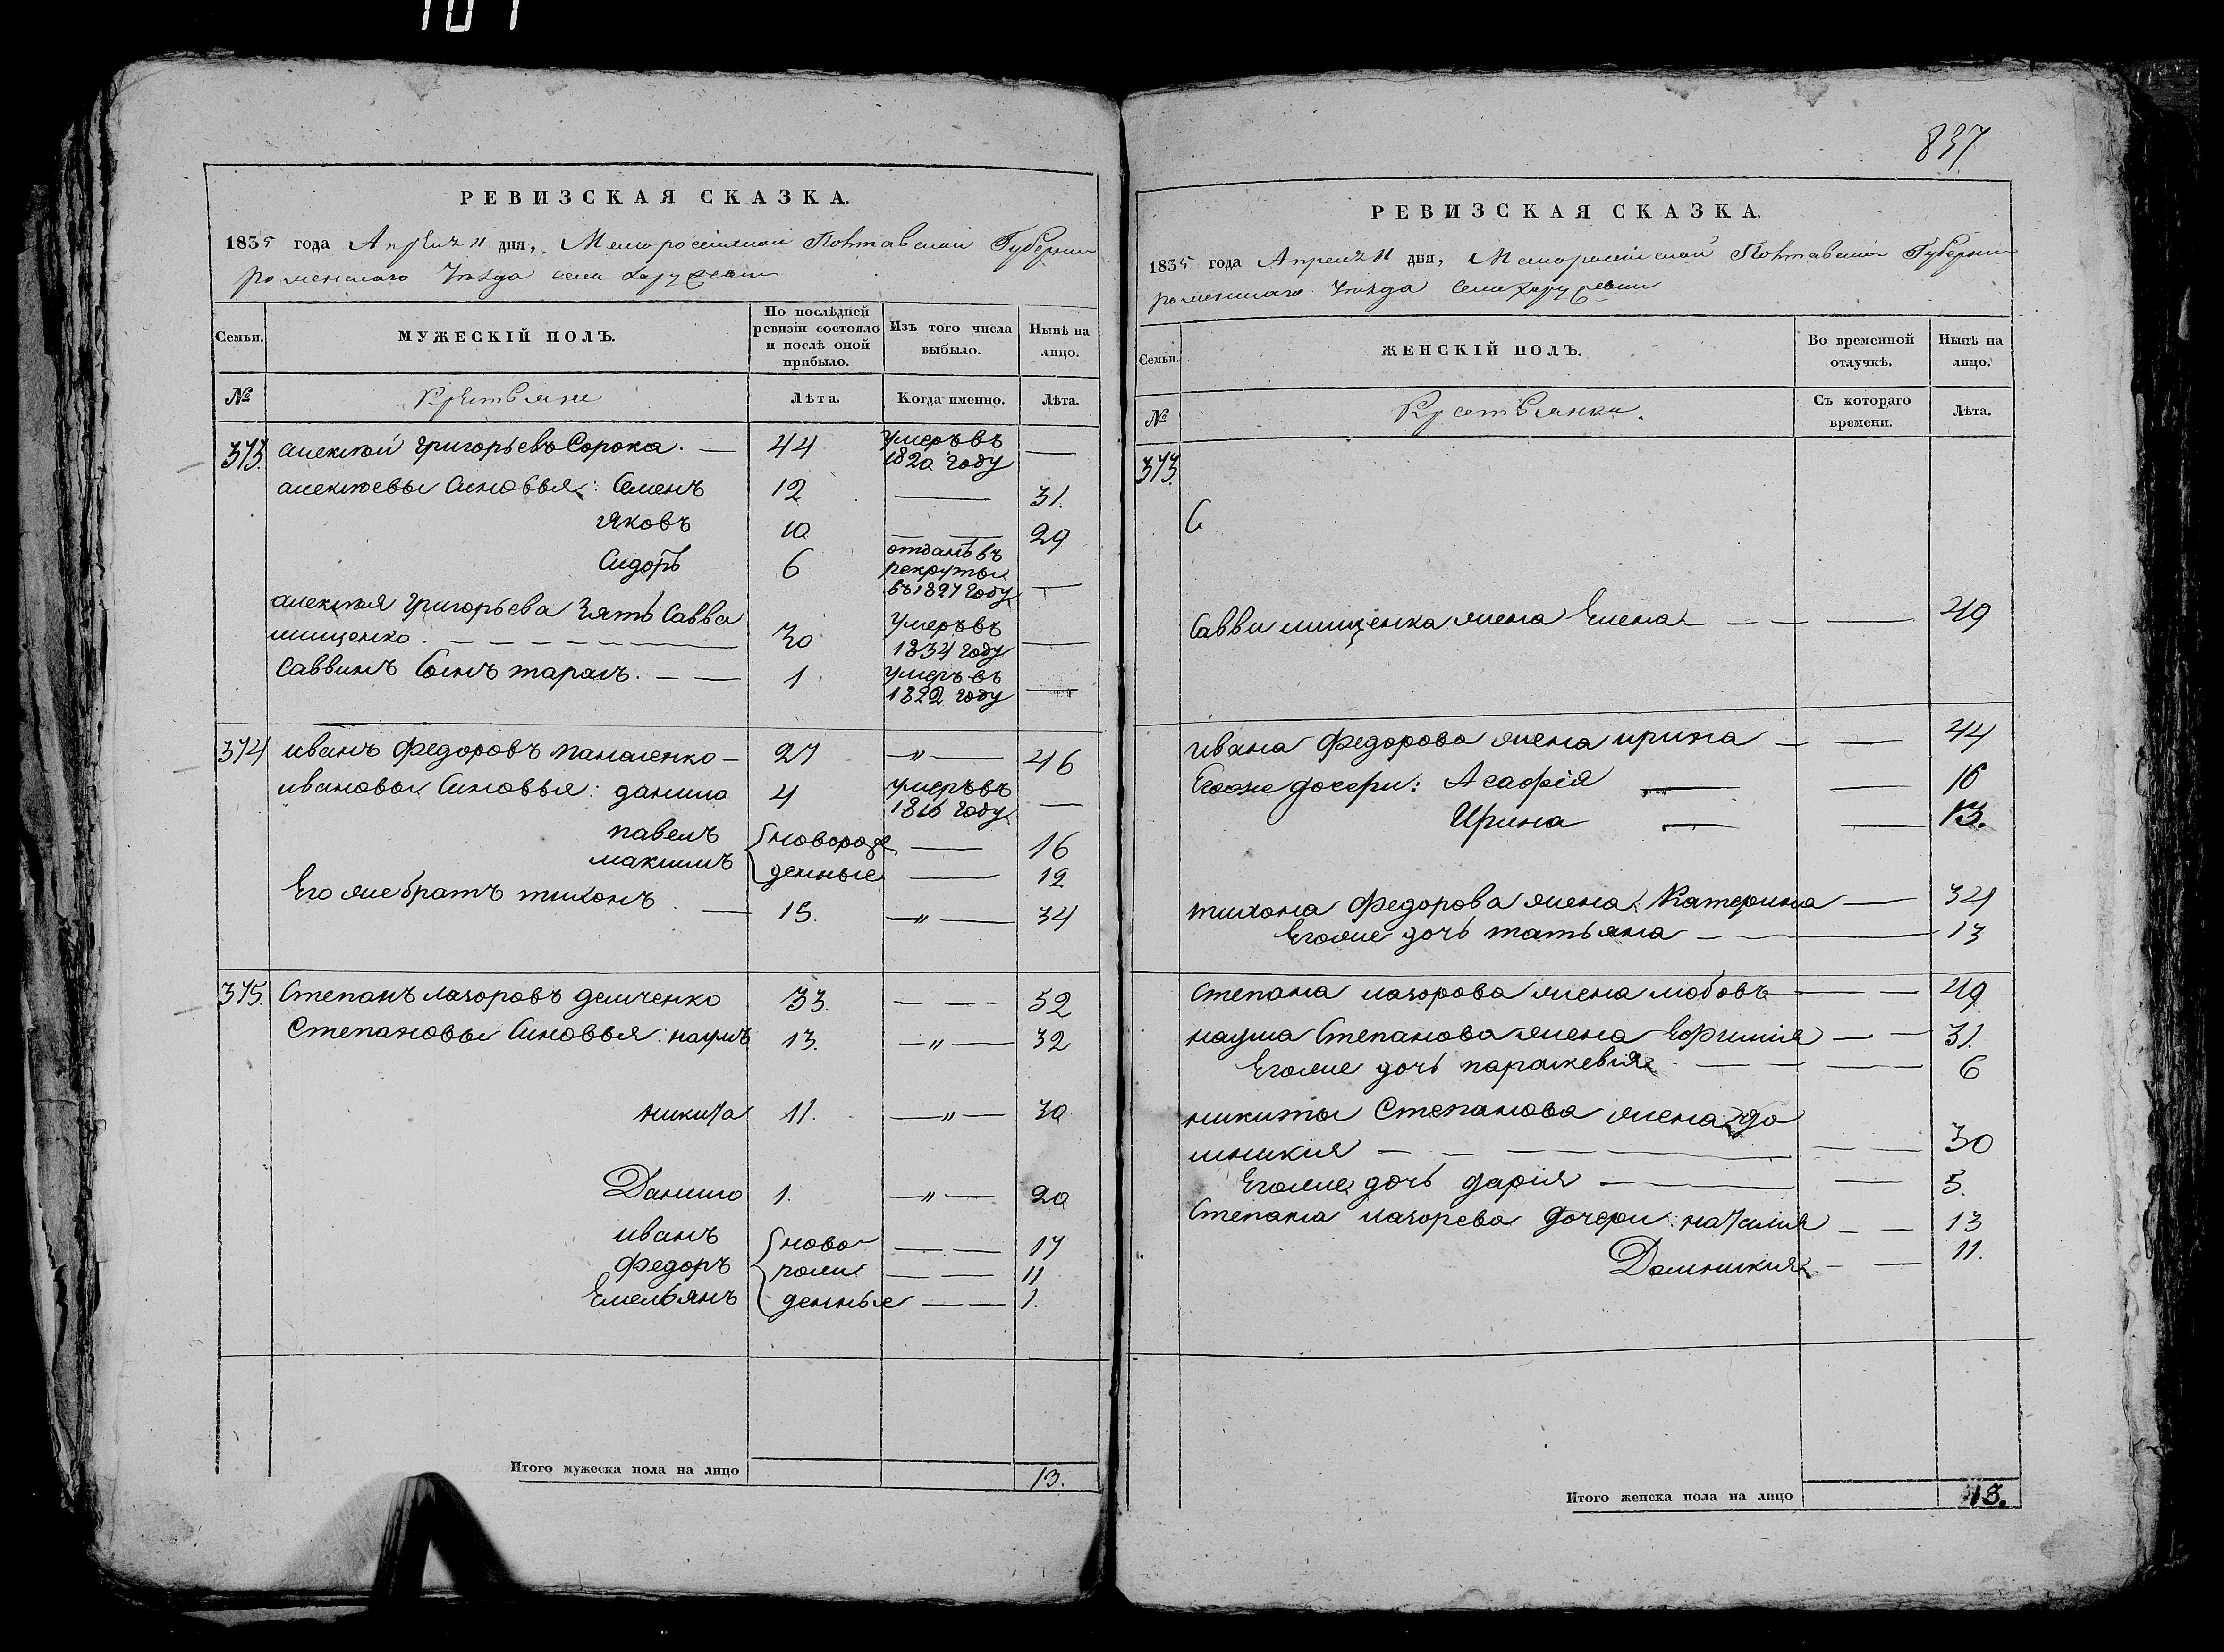 837
РЕВИЗСКАЯ СКАЗКА.
1835 года Апреля 11 дня, Малороссійской Полтавской Губерніи
роменскаго уезда села
Семьи.
МУЖЕСКІЙ ПОЛЪ.
По послѣдней ревизіи состояло и послѣ оной прибыло.
Изъ того числа выбыло.
Нынѣ на лицо.
№
Крестьяне
Лѣта.
Когда именно.
Лѣта.
373. алексѣй григорьевъ Сорока. — 44 умеръ въ 1820 году —
алексѣевы Сыновья: Семенъ 12 — 31.
яковъ 10 — — 29
Сидоръ 6 отданъ въ рекруты въ 1827 году —
алексѣя григорьева зять Савва
мищенко. — 30 умеръ въ 1834 году —
Саввинъ Сынъ тарасъ. — — 1 умеръ въ 1822 году —
374 иванъ федоровъ панасенко — 27 —"— 46
ивановы Сыновья: данило 4 умеръ въ 1816 году —
павелъ { новорож — 16
максимъ { денные — 12
Его же братъ тихонъ. — 15. —"— 34
375. Степанъ лазоровъ демченко 33. — — - 52
Степановы Сыновья: наумъ 13. —"— 32
никита 11. —"— 30
Данило 1. —"— 20
иванъ { ново — — 17
федоръ { рож — — 11
Емельянъ { денные — — 1.
Итого мужеска пола на лицо 13.
РЕВИЗСКАЯ СКАЗКА.
1835 года Апреля 11 дня, Малороссійской Полтавской Губерніи
роменскаго уезда села
Семьи.
ЖЕНСКІЙ ПОЛЪ.
Во временной отлучкѣ.
Нынѣ на лицо.
№
Крестьянки.
Съ котораго времени.
Лѣта.
373.
С
Саввы мищенка жена Елена — — — 49
ивана федорова жена ирина — — 44
Егоже дочери: Агафія — — 16
Ирина — — 13.
тихона федорова жена Катерина — 34
Егоже дочь татьяна — — 13
Степана лазорова жена любовь — — 49
наума Степанова жена Ефимия — — 31.
Егоже дочь параскевия — — — 6
никиты Степанова жена до
мникия — — — — — 30
Егоже дочь дария — — — 5.
Степана лазорева дочери: наталия — — 13
Домникия — — 11.
Итого женска пола на лицо 13.